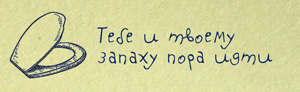 Тебе и твоему
запаху пора идти